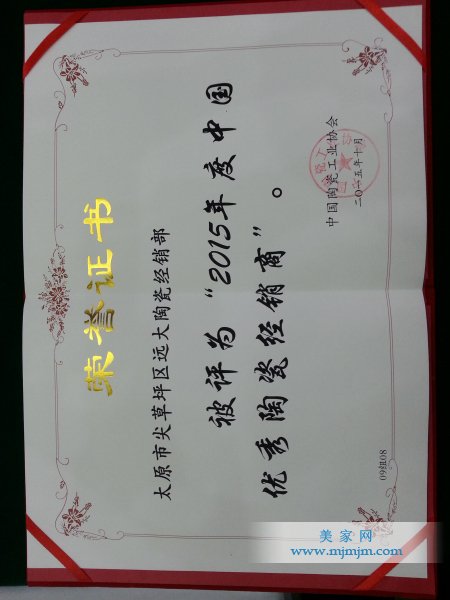 荣誉证书
太原市尖草坪区远大陶瓷经销部
被评为“2015年度中国
优秀陶瓷经销商”。
中国陶瓷工业协会
二〇一五年十月
美家网
www.mjmjm.com